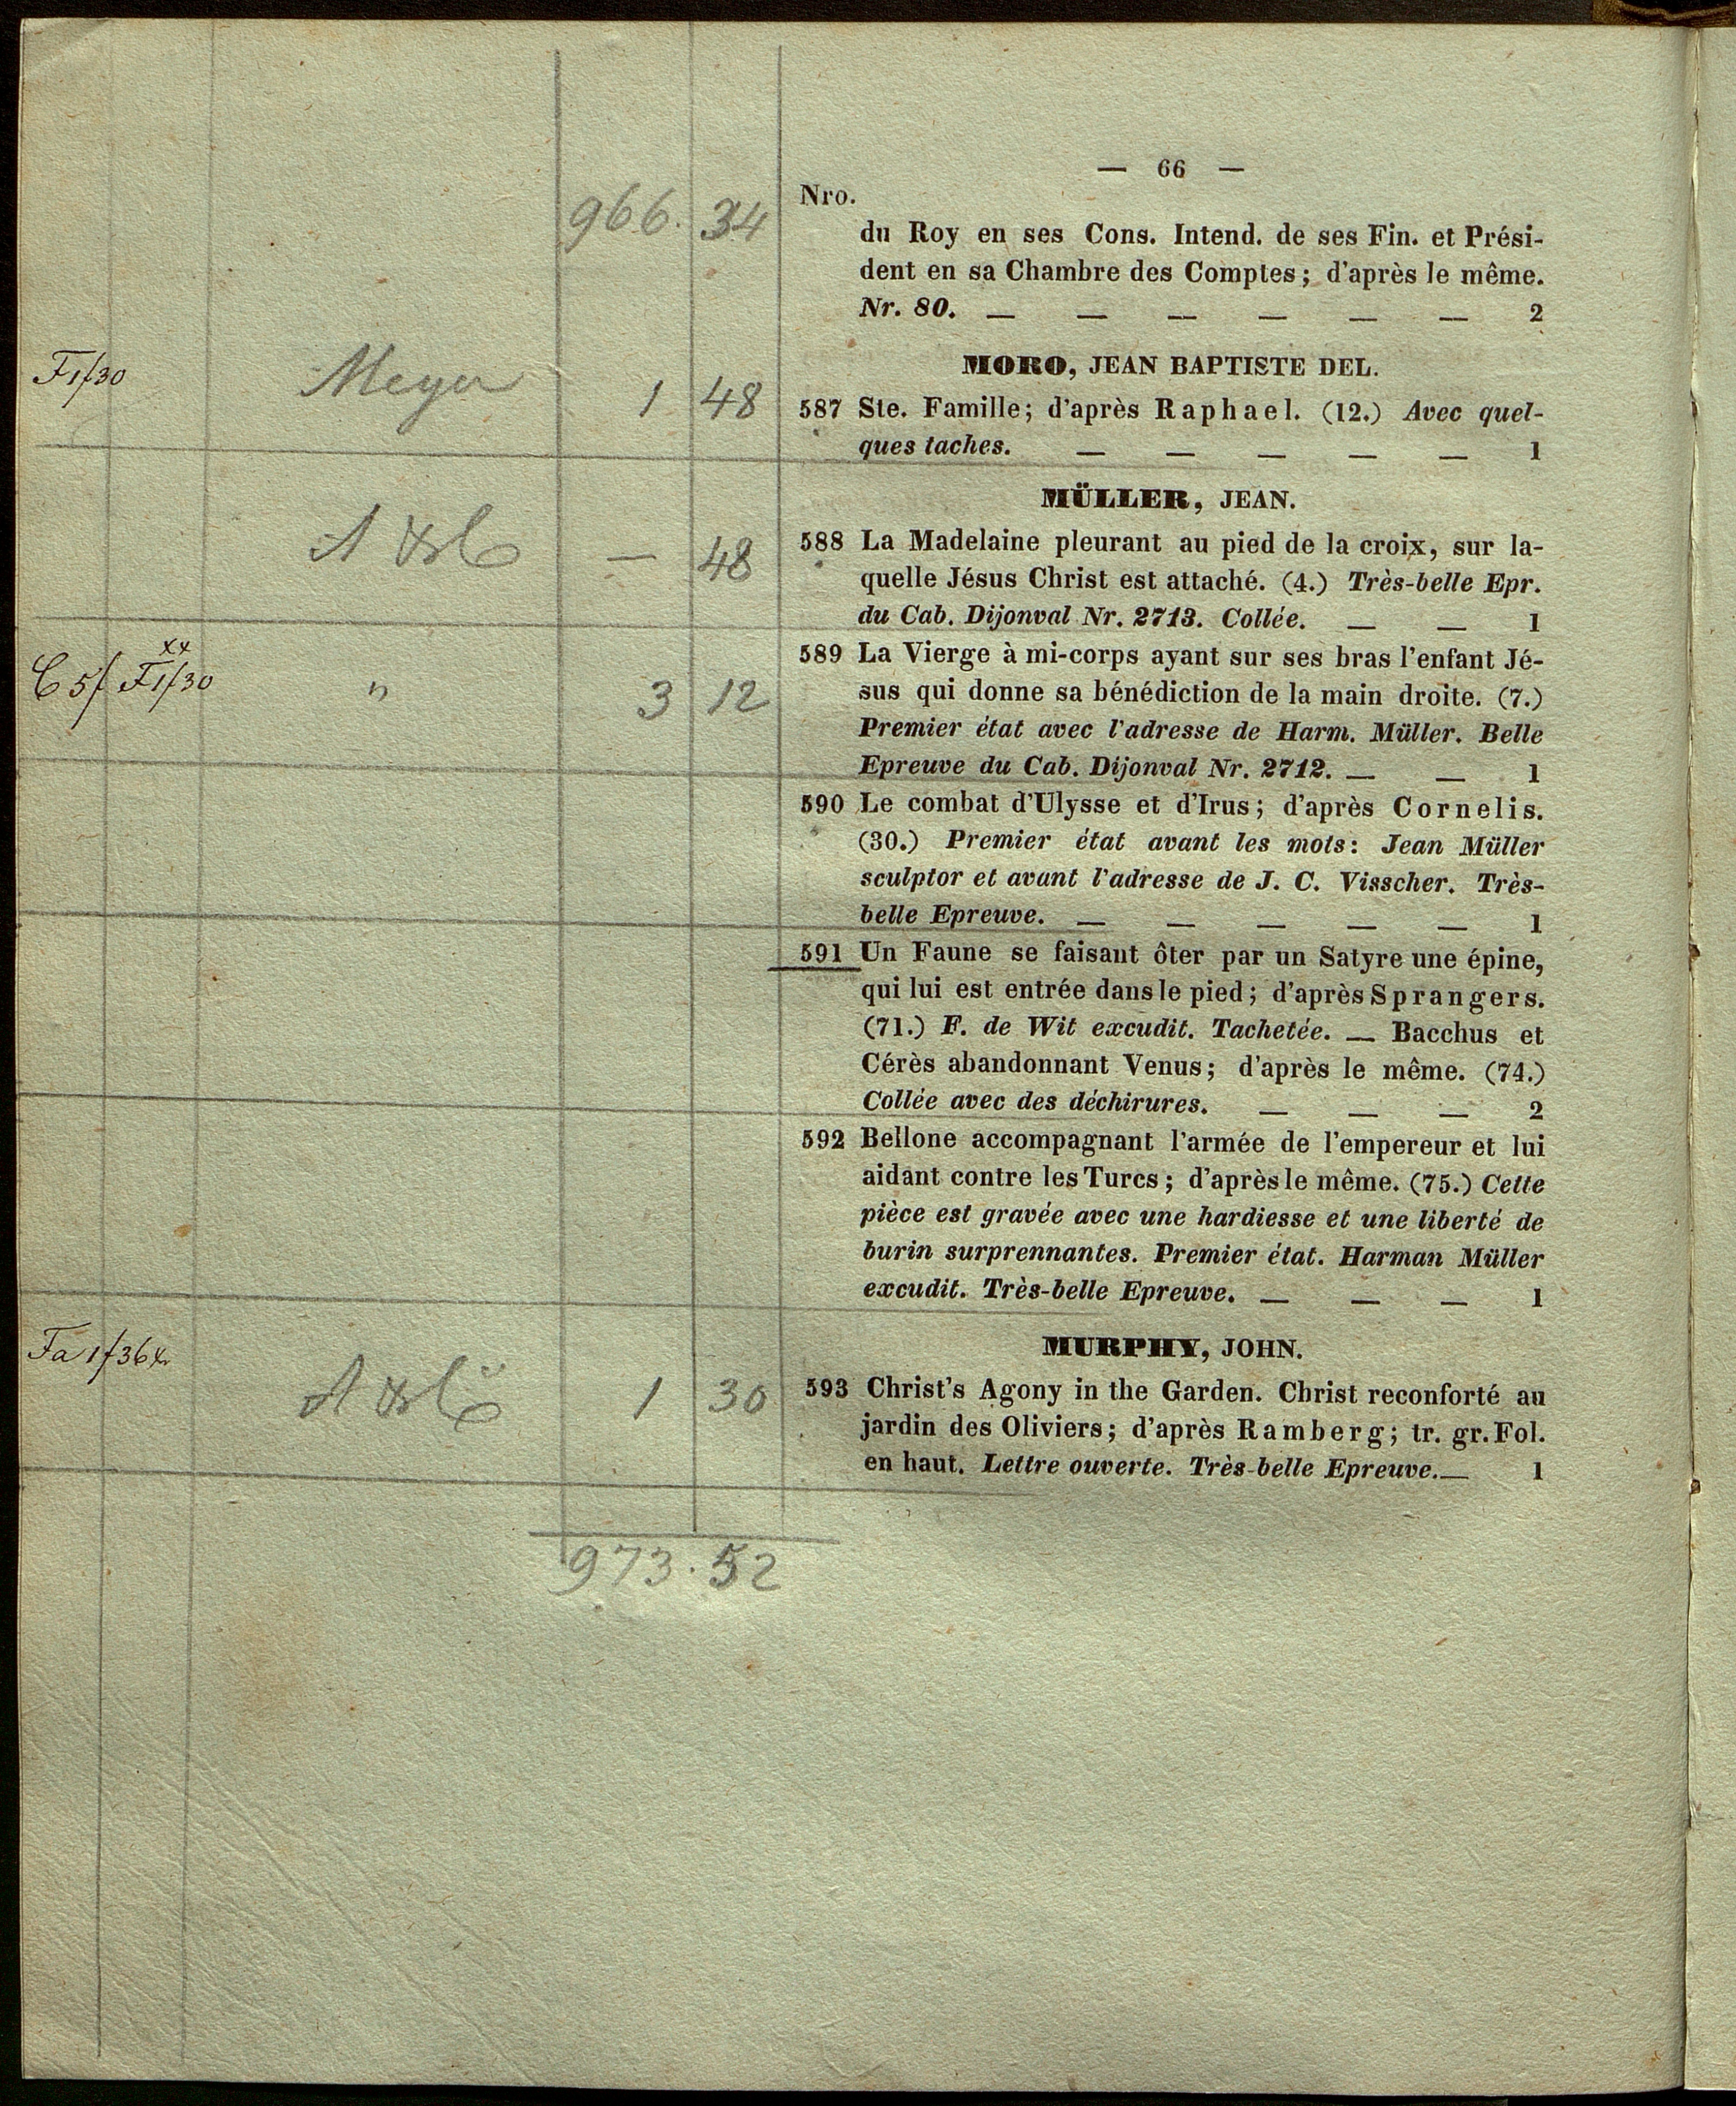 — 66 —
Nro.
966. 34
du Roy en ses Cons. Intend. de ses Fin. et Prési-
dent en sa Chambre des Comptes; d'après le même.
Nr. 80. — — — — — — 2
MORO, JEAN BAPTISTE DEL.
F 1f30 Meyer 1 48
587 Ste. Famille; d'après Raphael. (12.) Avec quel-
ques taches. — — — — — 1
MÜLLER, JEAN.
— 48
588 La Madelaine pleurant au pied de la croix, sur la-
quelle Jésus Christ est attaché. (4.) Très-belle Epr.
du Cab. Dijonval Nr. 2713. Collée. — — 1
C 5f F 1f30 " 3 12
589 La Vierge à mi-corps ayant sur ses bras l'enfant Jé-
sus qui donne sa bénédiction de la main droite. (7.)
Premier état avec l'adresse de Harm. Müller. Belle
Epreuve du Cab. Dijonval Nr. 2712. — — 1
590 Le combat d'Ulysse et d'Irus; d'après Cornelis.
(30.) Premier état avant les mots: Jean Müller
sculptor et avant l'adresse de J. C. Visscher. Très-
belle Epreuve. — — — — — 1
591 Un Faune se faisant ôter par un Satyre une épine,
qui lui est entrée dans le pied; d'après Sprangers.
(71.) F. de Wit excudit. Tachetée. — Bacchus et
Cérès abandonnant Venus; d'après le même. (74.)
Collée avec des déchirures. — — — 2
592 Bellone accompagnant l'armée de l'empereur et lui
aidant contre les Turcs; d'après le même. (75.) Cette
pièce est gravée avec une hardiesse et une liberté de
burin surprennantes. Premier état. Harman Müller
excudit. Très-belle Epreuve. — — — 1
MURPHY, JOHN.
Fa 1f36x 1 30
593 Christ's Agony in the Garden. Christ reconforté au
jardin des Oliviers; d'après Ramberg; tr. gr. Fol.
en haut. Lettre ouverte. Très-belle Epreuve.— 1
973. 52